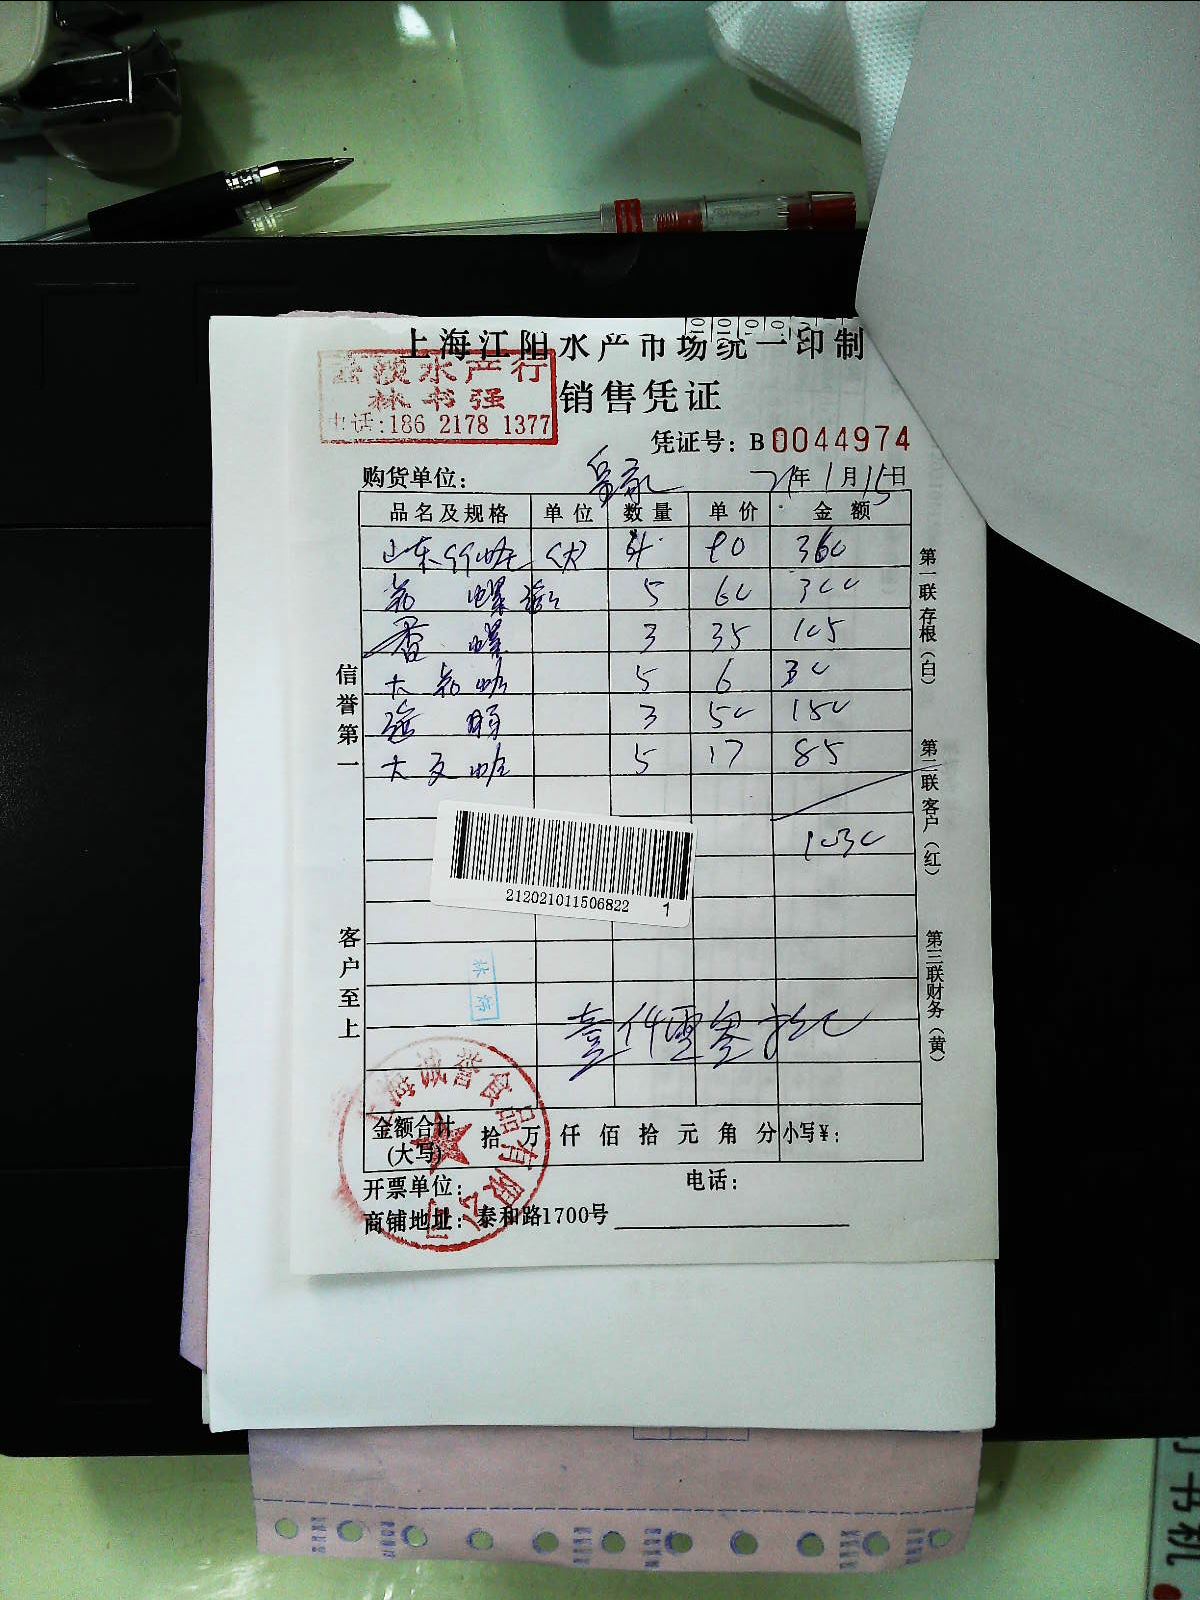 上海江阳水产市场统一印制
水产行
林书强
电话:186 2178 1377
销售凭证
凭证号: B0044974
购货单位: 21年1月15日
品名及规格 单位 数量 单价 金额
山东竹蛏 4 90 360
花螺 5 60 300
香螺 3 35 105
大花蛤 5 6 30
3 50 150
大文蛤 5 17 85
1030
212021011506822 1
壹仟零叁拾元
信誉第一
客户至上
第一联存根(白)
第二联客户(红)
第三联财务(黄)
上海诚誉食品有限公司
金额合计(大写) 拾 万 仟 佰 拾 元 角 分 小写¥:
开票单位: 电话:
商铺地址: 泰和路1700号